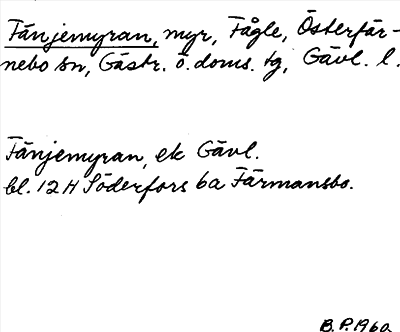 Fänjemyran, myr, Fågle, Österfär-
nebo sn, Gästr. ö. doms. tg, Gävl. l.
Fänjemyran, ek Gävl.
bl. 12 H Söderfors 6a Färmansbo.
B.P. 1960